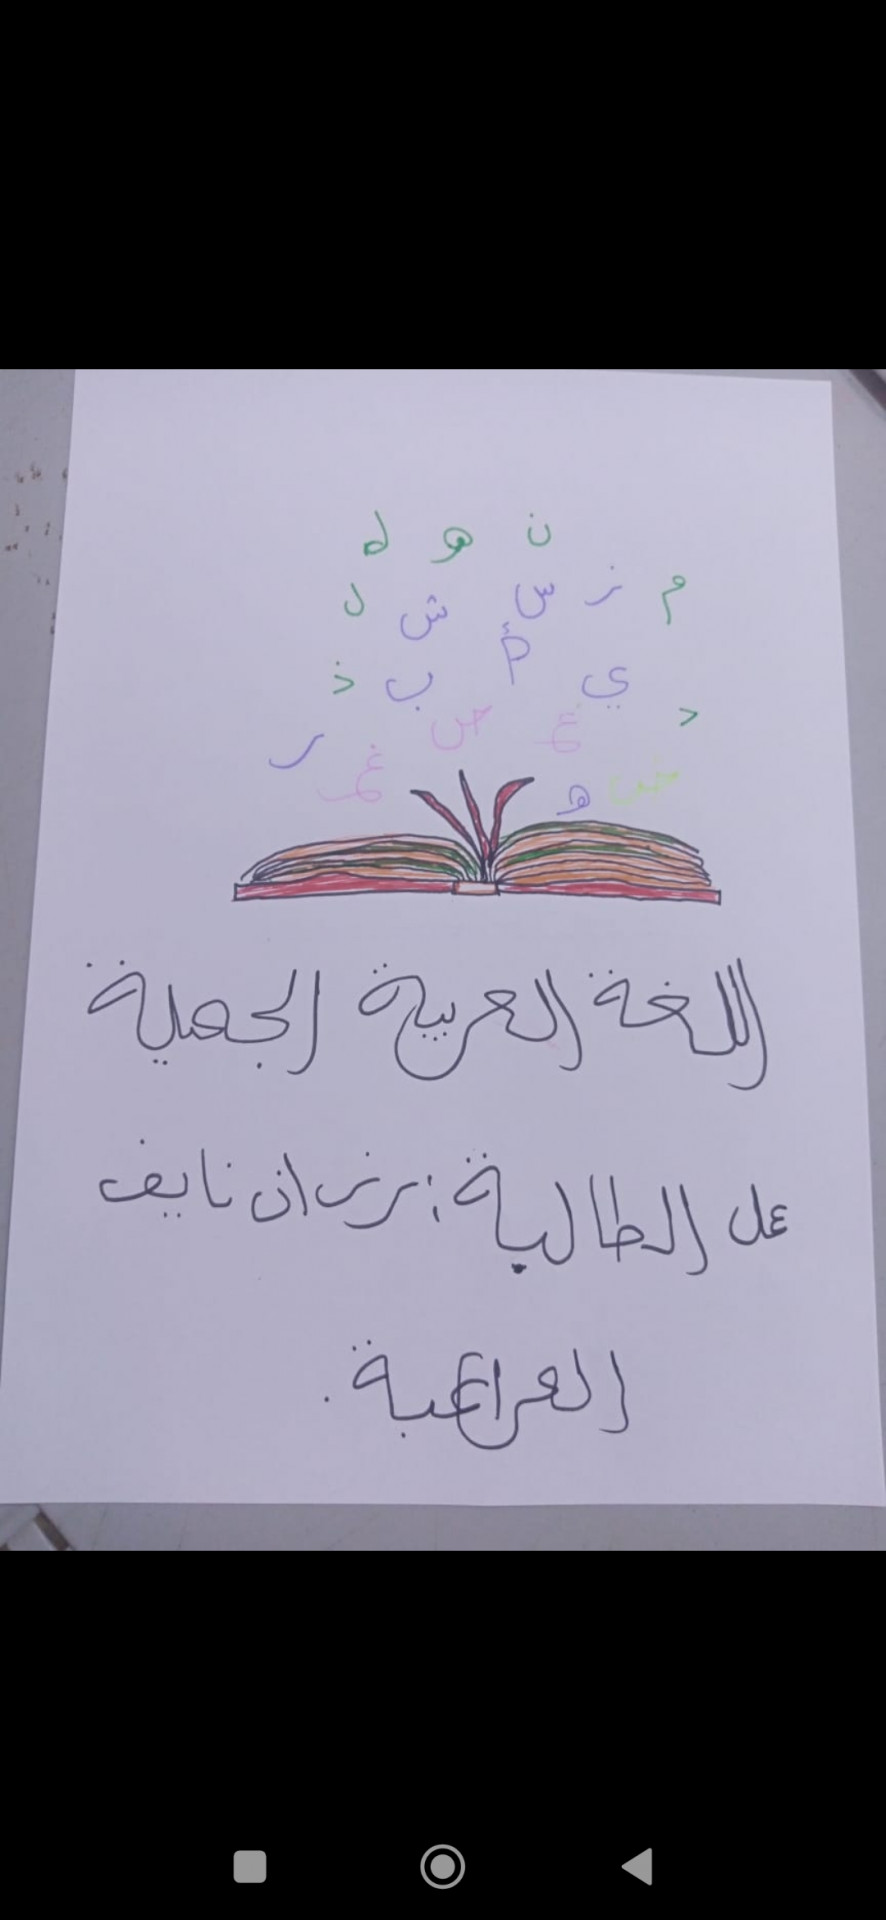 ن هو ل
م ز س ش ل
أ
ي ب ذ
د غ ض
ر
ض ه غ
اللغة العربية الجميلة
عمل الطالبة : رزان نايف
المراعبة .